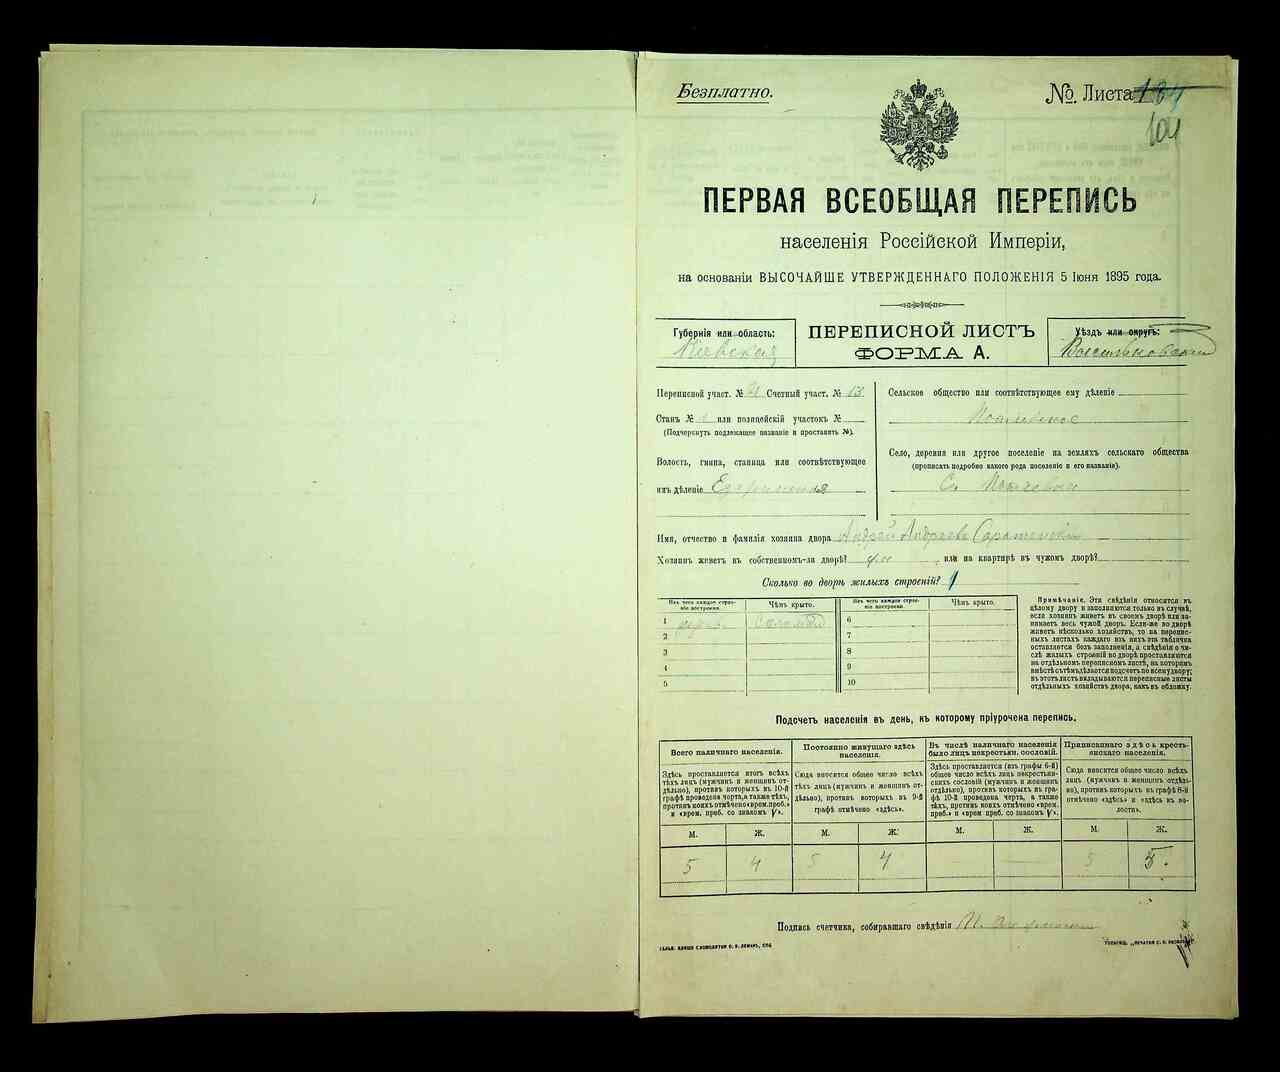 Безплатно.
№ Листа 104
ПЕРВАЯ ВСЕОБЩАЯ ПЕРЕПИСЬ
населенія Россійской Имперіи,
на основаніи ВЫСОЧАЙШЕ УТВЕРЖДЕННАГО ПОЛОЖЕНІЯ 5 Іюня 1895 года.
Губернія или область:
Кіевская
ПЕРЕПИСНОЙ ЛИСТЪ
ФОРМА А.
Уѣздъ или округъ:
Васильковскій
Переписной участ. № Счетный участ. № 13
Станъ № или полицейскій участокъ №
(Подчеркнуть подлежащее названіе и проставить №).
Волость, гмина, станица или соотвѣтствующее
имъ дѣленіе
Сельское общество или соотвѣтствующее ему дѣленіе
Село, деревня или другое поселеніе на земляхъ сельскаго общества
(прописать подробно какого рода поселеніе и его названіе).
Имя, отчество и фамилія хозяина двора Андрей Андреевъ
Хозяинъ живетъ въ собственномъ-ли дворѣ? или на квартирѣ въ чужомъ дворѣ?
Сколько во дворѣ жилыхъ строеній? 1
Изъ чего каждое строеніе построено. Чѣмъ крыто. Изъ чего каждое строеніе построено. Чѣмъ крыто.
1 дерев. соломой 6
2 7
3 8
4 9
5 10
Примѣчаніе. Эти свѣдѣнія относятся къ
цѣлому двору и заполняются только въ случаѣ,
если хозяинъ живетъ въ своемъ дворѣ или занимаетъ
весь чужой дворъ. Если-же во дворѣ
живетъ нѣсколько хозяйствъ, то на переписныхъ
листахъ каждаго изъ нихъ эта табличка
оставляется безъ заполненія, а свѣдѣнія о числѣ
жилыхъ строеній во дворѣ проставляются
на отдѣльномъ переписномъ листѣ, на которомъ
вмѣстѣ съ тѣмъ дѣлается подсчетъ по всему двору;
въ этотъ листъ вкладываются переписные листы
отдѣльныхъ хозяйствъ двора, какъ въ обложку.
Подсчетъ населенія въ день, къ которому пріурочена перепись.
Всего наличнаго населенія.
Здѣсь проставляется итогъ всѣхъ
лицъ (мужчинъ и женщинъ отдѣльно),
противъ которыхъ въ 10-й
графѣ проведена черта, а также тѣхъ,
противъ коихъ отмѣчено «врем. преб.»
и «врем. преб. со знакомъ V».
Постоянно живущаго здѣсь
населенія.
Сюда вносится общее число всѣхъ
тѣхъ лицъ (мужчинъ и женщинъ отдѣльно),
противъ которыхъ въ 9-й
графѣ отмѣчено «здѣсь».
Въ числѣ наличнаго населенія
было лицъ некрестьян. сословій.
Здѣсь проставляется (изъ графы 6-й)
общее число всѣхъ лицъ некрестьянскихъ
сословій (мужчинъ и женщинъ
отдѣльно), противъ которыхъ въ графѣ
10-й проведена черта, а также
тѣхъ, противъ коихъ отмѣчено «врем.
преб.» и «врем. преб. со знакомъ V».
Приписаннаго здѣсь крестьянскаго
населенія.
Сюда вносится общее число всѣхъ
лицъ (мужчинъ и женщинъ отдѣльно),
противъ которыхъ въ графѣ 8-й
отмѣчено «здѣсь» и «здѣсь въ волости».
М. Ж. М. Ж. М. Ж. М. Ж.
5 4 5 4 5 5.
Подпись счетчика, собиравшаго свѣдѣнія